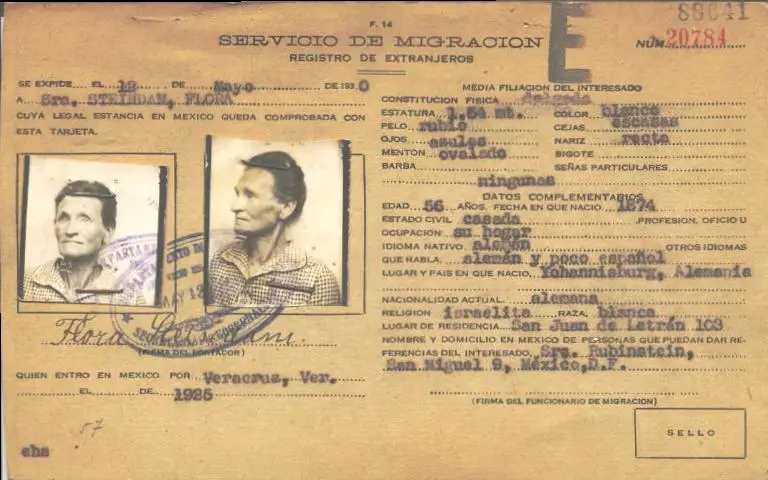 F. 14
88641
SERVICIO DE MIGRACION
NUM. 20784
REGISTRO DE EXTRANJEROS
E
SE EXPIDE EL 12 DE Mayo DE 1930
A Sra. STEINDAM, FLORA
CUYA LEGAL ESTANCIA EN MEXICO QUEDA COMPROBADA CON
ESTA TARJETA.
MAY 12
Flora
(FIRMA DEL PORTADOR)
QUIEN ENTRO EN MEXICO POR Veracruz, Ver.
EL DE 1925
57
ehs
MEDIA FILIACION DEL INTERESADO
CONSTITUCION FISICA delgada
ESTATURA 1.54 mt. COLOR blanco
PELO rubio CEJAS escasas
OJOS azules NARIZ recta
MENTON ovalado BIGOTE
BARBA SEÑAS PARTICULARES
ningunas
DATOS COMPLEMENTARIOS
EDAD 56 AÑOS. FECHA EN QUE NACIO 1874
ESTADO CIVIL casada .PROFESION, OFICIO U
OCUPACION su hogar
IDIOMA NATIVO alemán OTROS IDIOMAS
QUE HABLA. alemán y poco español
LUGAR Y PAIS EN QUE NACIO, Yohannisburg, Alemania
NACIONALIDAD ACTUAL. alemana
RELIGION israelita RAZA, blanca
LUGAR DE RESIDENCIA San Juan de Letrán 103
NOMBRE Y DOMICILIO EN MEXICO DE PERSONAS QUE PUEDAN DAR RE-
FERENCIAS DEL INTERESADO, Sra. Rubinstein,
San Miguel 9, México,D.F.
(FIRMA DEL FUNCIONARIO DE MIGRACION)
SELLO